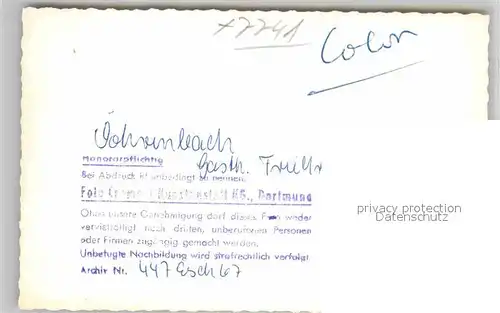 +7741
Color
Honorarpflichtig
Gasth.
Bei Abdruck ist unbedingt zu nennen:
Foto Kunstanstalt KG., Dortmund
Ohne unsere Genehmigung darf dieses Foto weder
vervielfältigt noch dritten, unberufenen Personen
oder Firmen zugängig gemacht werden.
Unbefugte Nachbildung wird strafrechtlich verfolgt.
Archiv Nr. 447 Esch 67
privacy protection
Datenschutz